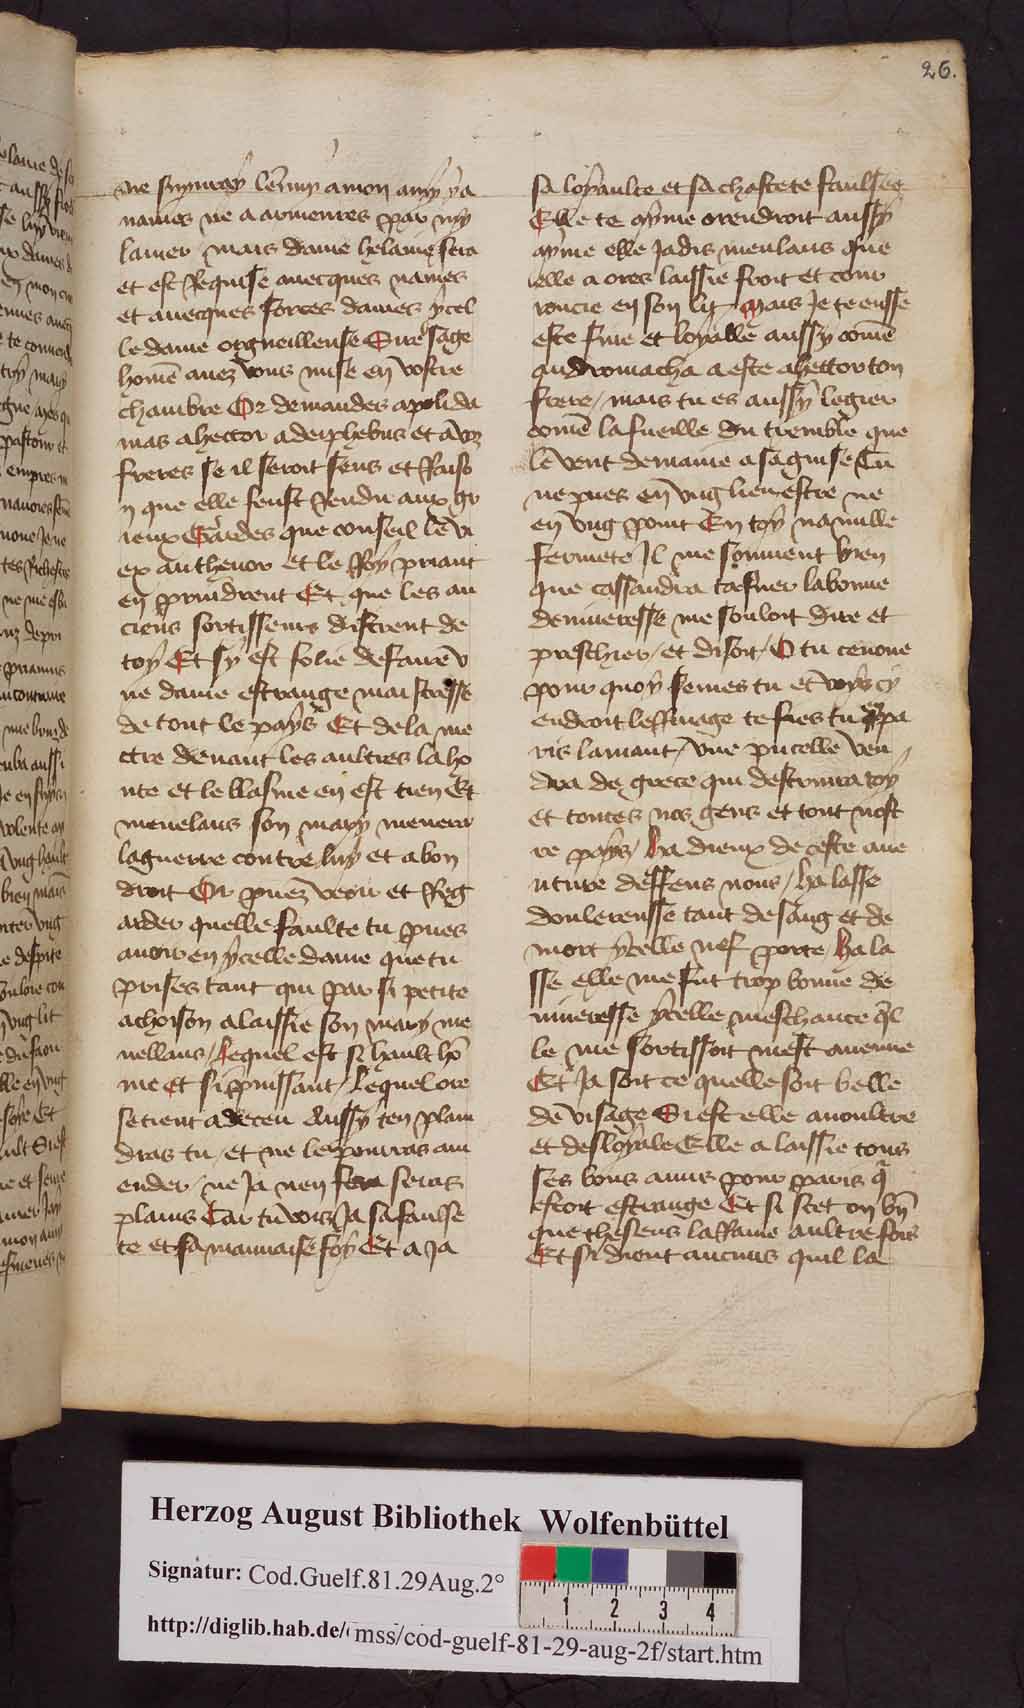 26.
ne suyuray lenuy a mon amy ya
names ne a armeures par my
lamer / mais dame helaine sera
et est Requise auecques names
et auecques forces dames ycel
le dame orgueilleuse Sire sage
home auez vous mise en vostre
chambre Or demandes a polida
mas a hector a deiphebus et a voz
freres se il seroit sens et Raiso
n que elle feust Rendu aux gr
ieux Gardes que conseil le vi
ex anthenor et le Roy priant
en prindrent Et que les an
ciens sortisseurs distrent de
toy Et sy est folie de faire v
ne dame estrange maistresse
de tout le pays Et de la me
ctre deuant les aultres la ho
nte et le blasme en est tien Et
menelaus son mary menera
la guerre contre luy et a bon
droit Or puez veoir et Reg
arder quelle faulte tu pues
auoir en ycelle dame que tu
prises tant qui par si petite
achoison a laissie son mary me
nellaus / Lequel est si hault ho
me et si puissant / Lequel ore
se tient a deceu Aussy ten plain
dras tu / et ne le pourras am
ender / ne Ja nen seras
plains Car tu vois Ja sa faulse
te et sa mauuaise foy Et a Ja
sa loyaulte et sa chastete faulsee
Elle te ayme orendroit aussy
ayme elle Jadis menlaus que
elle a ores laissie froit et cour
roucie en son lit Mais Je te eusse
este fine et loyalle aussy come
andromacha a este a hector ton
frere / mais tu es aussy legier
come la fueille du tremble que
le vent demaine a sa guise Tu
ne pues en vng lieu estre ne
en vng point En toy na nulle
fermete Il me souuient bien
que cassandra ta suer la bonne
deuineresse me souloit dire et
preschier / et disoit / O tu cenone
pour quoy semes tu et voys cy
endroit le Riuage te fies tu a pa
ris lamant / vne pucelle ven
dra de grece qui destruira toy
et toutes nos gens et tout nost
re pays / ha dieux de ceste aue
nture deffens nous / ha lasse
doulereusse tant de sang et de
mort ycelle nef porte / ha la
sse elle me fut trop bonne de
uineresse ycelle meschance q̃l
le me sortissoit mest auenue
Et Ja soit ce quelle soit belle
de visage Si est elle auoultre
et desloyale Elle a laissie tous
ses bons amis pour paris q̃
estoit estrange Et si scet on bn̄
que theseus la Rauie aultre fois
Et si dient aucuns quil la
Herzog August Bibliothek Wolfenbüttel
Signatur: Cod.Guelf.81.29Aug.2°
http://diglib.hab.de/mss/cod-guelf-81-29-aug-2f/start.htm
1 2 3 4